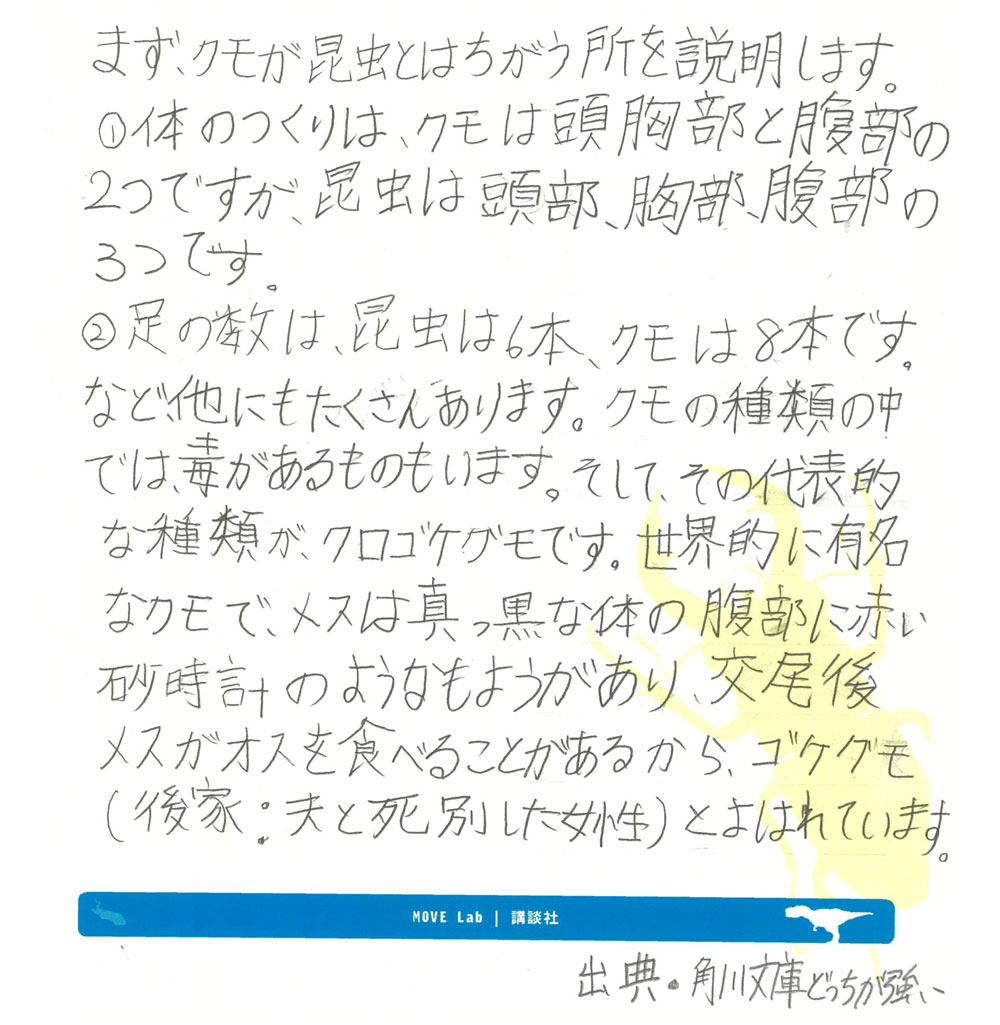 まず、クモが昆虫とはちがう所を説明します。
①体のつくりは、クモは頭胸部と腹部の
2つですが、昆虫は頭部、胸部、腹部の
3つです。
②足の数は、昆虫は6本、クモは8本です。
など、他にもたくさんあります。クモの種類の中
では、毒があるものもいます。そして、その代表的
な種類が、クロゴケグモです。世界的に有名
なクモで、メスは真っ黒な体の腹部に赤い
砂時計のようなもようがあり、交尾後
メスがオスを食べることがあるから、ゴケグモ
(後家:夫と死別した女性)とよはれています。
MOVE Lab | 講談社
出典・角川文庫どっちが強い